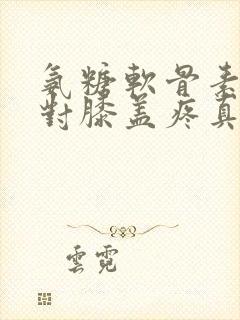 氨糖軟骨素
對膝盖疼真
雲霓